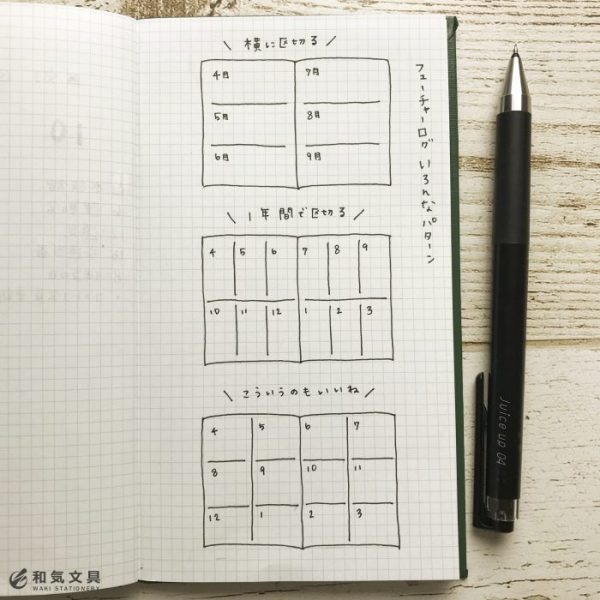 フューチャーログ いろんなパターン
\ 横に区切る /
4月 7月
5月 8月
6月 9月
\ 1年間で区切る /
4 5 6 7 8 9
10 11 12 1 2 3
\ こういうのもいいね /
4 5 6 7
8 9 10 11
12 1 2 3
Juice up 04
和気文具
WAKI STATIONERY